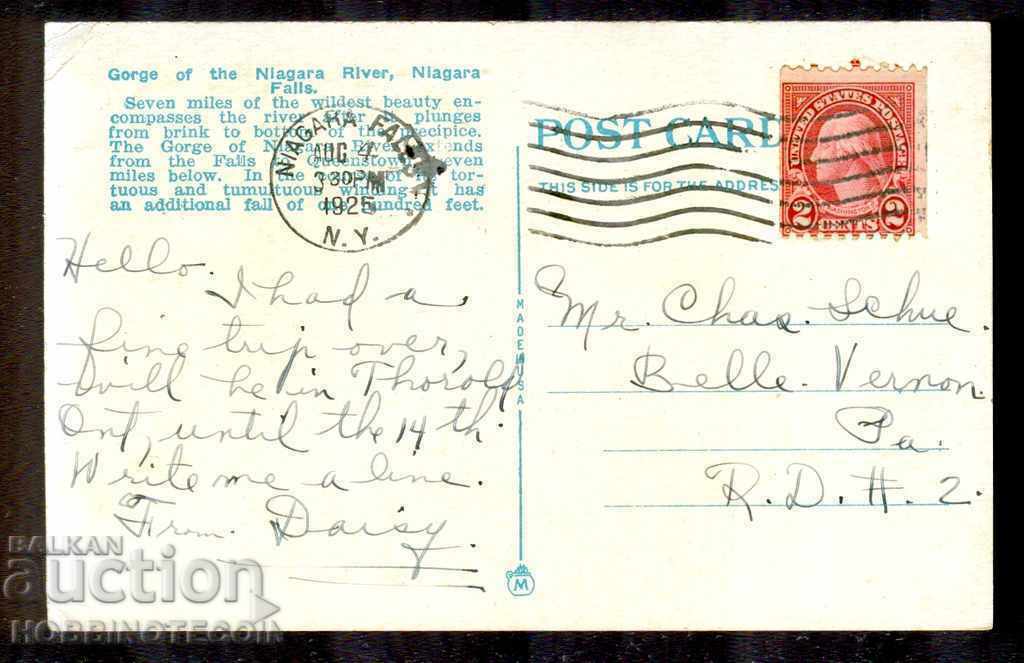 Gorge of the Niagara River, Niagara
Falls.
Seven miles of the wildest beauty en-
compasses the river after it plunges
from brink to bottom of the precipice.
The Gorge of Niagara River extends
from the Falls to Queenstown, seven
miles below. In the course of its tor-
tuous and tumultuous winding it has
an additional fall of one hundred feet.
NIAGARA FALLS
AUG 4
3 30PM
1925
N. Y.
POST CARD
THIS SIDE IS FOR THE ADDRESS
UNITED STATES POSTAGE
2 CENTS 2
Hello.
I had a
fine trip over,
will be in Thorold
Ont, until the 14th.
Write me a line.
From Daisy.
MADE IN USA
M
Mr. Chas. Schue.
Belle. Vernon.
Pa.
R. D. #. 2.
BALKAN
auction
HOBBINOTECOIN